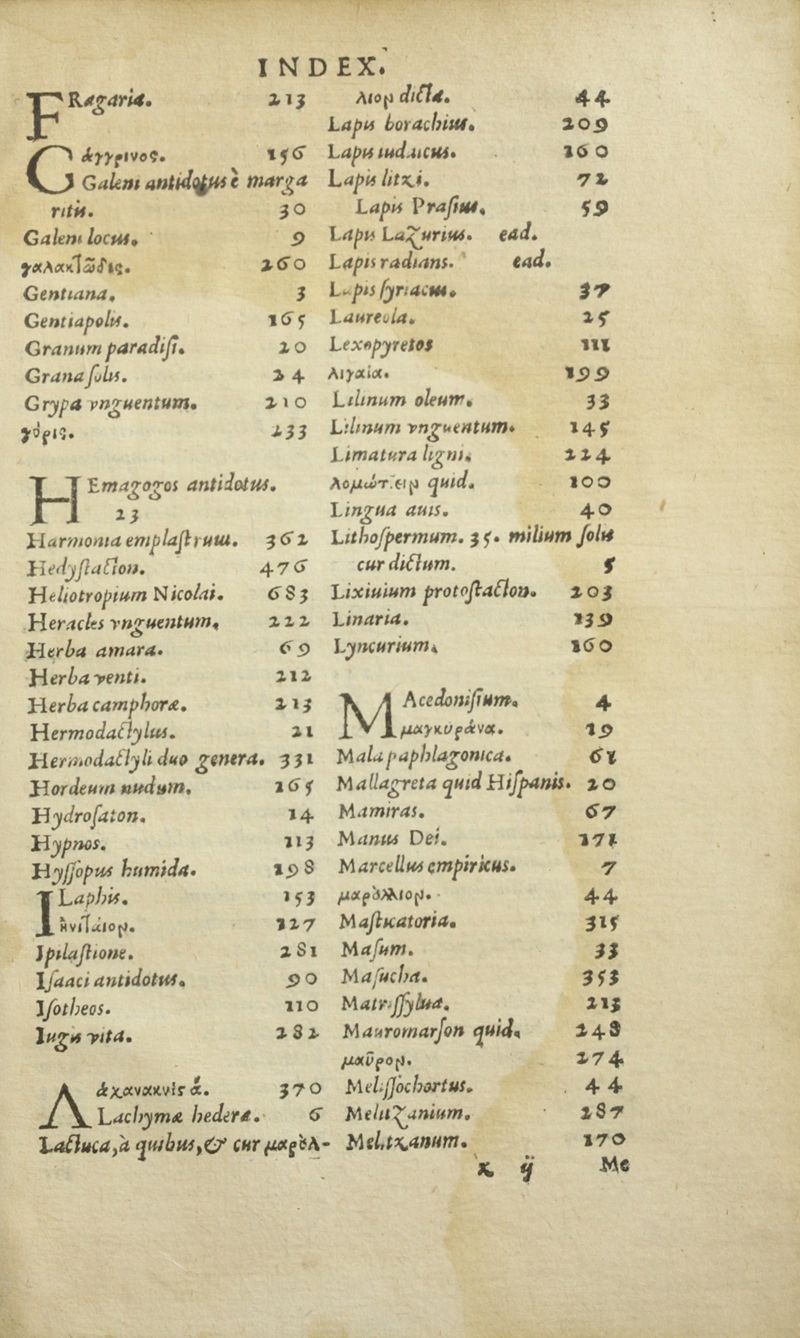 INDEX.
FRagaria. 213
Γάγγρινος. 156
Galeni antidotus è marga
ritis. 30
Galeni locus. 9
γαλακτώδις. 260
Gentiana. 3
Gentiapolis. 165
Granum paradisi. 20
Grana solis. 24
Grypa vnguentum. 210
γύρις. 233
HEmagogos antidotus.
23
Harmonia emplastrum. 362
Hedystacton. 476
Heliotropium Nicolai. 683
Heracles vnguentum. 222
Herba amara. 69
Herba venti. 212
Herba camphoræ. 213
Hermodactylus. 21
Hermodactyli duo genera. 331
Hordeum nudum. 265
Hydrosaton. 14
Hypnos. 113
Hyssopus humida. 198
ILaphis. 153
127
Ipilastione. 281
Isaaci antidotus. 90
Isotheos. 110
Iugis vita. 282
370
Lachymæ hederæ. 6
Lactuca, à quibus, & cur μαρȣλ-
λιον dicta. 44
Lapis borachius. 209
Lapis iudaicus. 160
Lapis litxi. 72
Lapis Prasius. 59
Lapis Lazurius. ead.
Lapis radians. ead.
Lapis syriacus. 37
Laureola. 25
Lexopyretos 111
λιγαία. 199
Lilinum oleum. 33
Lilinum vnguentum. 145
Limatura ligni. 224
quid. 100
Lingua auis. 40
Lithospermum. 35. milium solis
cur dictum. 5
Lixiuium protostacton. 203
Linaria. 139
Lyncurium. 160
MAcedonisium. 4
μαγκυράνα. 19
Mala paphlagonica. 61
Mallagreta quid Hispanis. 20
Mamiras. 67
Manus Dei. 171
Marcellus empiricus. 7
μαρȣλλιον. 44
Masticatoria. 315
Masum. 33
Masucha. 353
Matrissylua. 213
Mauromarson quid. 248
μαῦρον. 274
Melissochortus. 44
Melitzanium. 287
Melitxanum. 170
x ij Me